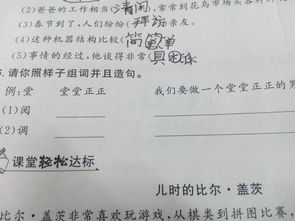 (2)爸爸的工作相当(清闲),常常到花鸟市场买各种
(3)春节到了,人们纷纷(拜访)亲友。
(4)这种机器结构比较(简单)
(5)事情的经过,他谈得非常(具体
.请你照样子组词并且造句。
例:堂 堂堂正正 我们要做一个堂堂正正的
(1)阅
(2)调
课堂轻松达标
儿时的比尔·盖茨
比尔·盖茨非常喜欢玩游戏,从棋类到拼图比赛,